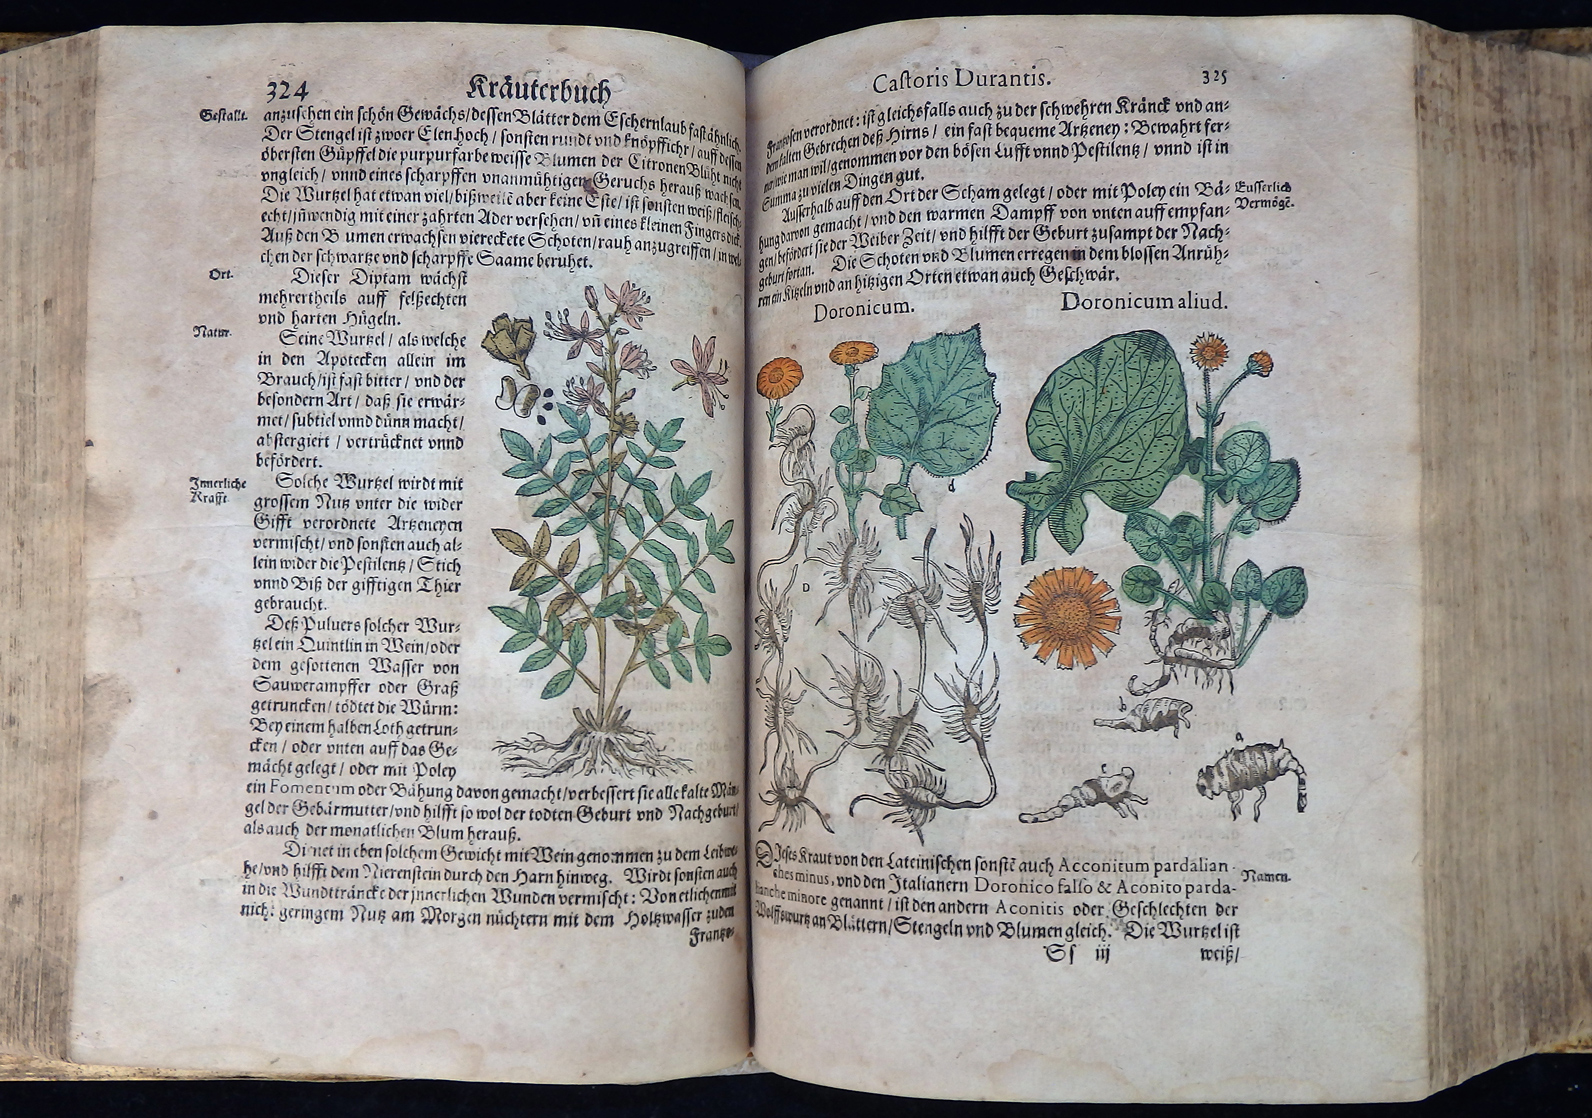 324 Kräuterbuch
Gestallt. anzusehen ein schön Gewächs/dessen Blätter dem Eschernlaub fast ähnlich.
Der Stengel ist zwoer Elen hoch/sonsten rundt vnd knöpffichr/auff dessen
öbersten Güpffel die purpurfarbe weisse Blumen der Citronen Blüht nicht
vngleich/vnnd eines scharpffen vnanmühtigen Geruchs herauß wachsen.
Die Wurtzel hat etwan viel/bißweilē aber keine Este/ist sonsten weiß/fleisch-
echt/jñwendig mit einer zahrten Ader versehen/vñ eines kleinen Fingers dick.
Auß den B umen erwachsen viereckete Schoten/rauh anzugreiffen/in wel-
chen der schwartze vnd scharpffe Saame beruhet.
Ort. Dieser Diptam wächst
mehrertheils auff felßechten
vnd harten Hügeln.
Natur. Seine Wurtzel/als welche
in den Apotecken allein im
Brauch/ist fast bitter/vnd der
besondern Art/daß sie erwär-
met/subtiel vnnd dünn macht/
abstergiert/vertrücknet vnnd
befördert.
Jnnerliche Krafft. Solche Wurtzel wirdt mit
grossem Nutz vnter die wider
Gifft verordnete Artzeneyen
vermischt/vnd sonsten auch al-
lein wider die Pestilentz/Stich
vnnd Biß der gifftigen Thier
gebraucht.
Deß Puluers solcher Wur-
tzel ein Quintlin in Wein/oder
dem gesottenen Wasser von
Sauwerampffer oder Graß
getruncken/tödtet die Würm:
Bey einem halben Loth getrun-
cken/oder vnten auff das Ge-
mächt gelegt/oder mit Poley
ein Fomentum oder Bähung davon gemacht/verbessert sie alle kalte Män-
gel der Gebärmutter/vnd hilfft so wol der todten Geburt vnd Nachgeburt/
als auch der monatlichen Blum herauß.
Di net in eben solchem Gewicht mit Wein genommen zu dem Leibwe-
he/vnd hilfft dem Nierenstein durch den Harn hinweg. Wirdt sonsten auch
in die Wundttråncke der jnnerlichen Wunden vermischt: Von etlichen mit
nich: geringem Nutz am Morgen nüchtern mit dem Holtzwasser zu den
Frantzo-
Castoris Durantis. 325
Frantzosen verordnet: ist gleichsfalls auch zu der schwehren Kränck vnd an-
dern kalten Gebrechen deß Hirns/ein fast bequeme Artzeney: Bewahrt fer-
ner/wie man wil/genommen vor den bösen Lufft vnnd Pestilentz/vnnd ist in
Summa zu vielen Dingen gut.
Ausserhalb auff den Ort der Scham gelegt/oder mit Poley ein Bä- Eusserlich Vermögē.
hung davon gemacht/vnd den warmen Dampff von vnten auff empfan-
gen/befördert sie der Weiber Zeit/vnd hilfft der Geburt zusampt der Nach-
geburt fortan. Die Schoten vnd Blumen erregen in dem blossen Anrüh-
ren ein Kitzeln vnd an hitzigen Orten etwan auch Geschwär.
Doronicum. Doronicum aliud.
d
D
b
a
c
DJeses Kraut von den Lateinischen sonstē auch Acconitum pardalian-
ches minus, vnd den Jtalianern Doronico falso & Aconito parda- Namen.
lianche minore genannt/ist den andern Aconitis oder Geschlechten der
Wolffswurtz an Blättern/Stengeln vnd Blumen gleich. Die Wurtzel ist
Ss iij weiß/